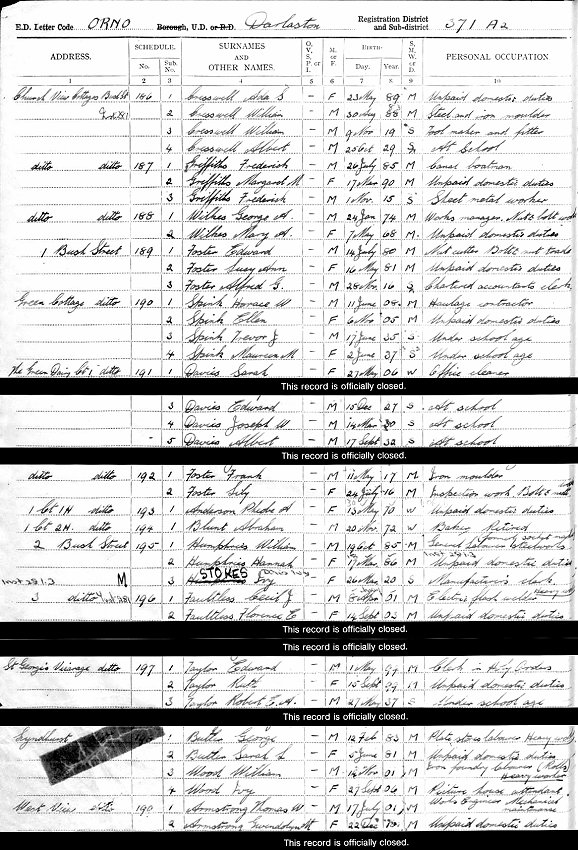 E.D. Letter Code ORNO Borough, U.D. or R.D. Darlaston Registration District and Sub-district 371 A2
ADDRESS. SCHEDULE. SURNAMES AND OTHER NAMES. O., V., S., P. or I. M. or F. BIRTH— S., M., W. or D. PERSONAL OCCUPATION
No. Sub. No. Day. Year.
1 2 3 4 5 6 7 8 9 10
Church View Cottages Bush St 186 1 Cresswell Ada S - F 23 May 89 M Unpaid domestic duties
2 Cresswell William - M 30 Aug 88 M Steel and iron moulder
3 Cresswell William - M 9 Nov 19 S Tool maker and fitter
4 Cresswell Albert - M 25 Oct 29 S At School
ditto ditto 187 1 Griffiths Frederick - M 26 July 85 M Canal boatman
2 Griffiths Margaret M - F 17 Mar 90 M Unpaid domestic duties
3 Griffiths Frederick - M 1 Nov. 15 S Sheet metal worker
ditto ditto 188 1 Wilkes George A. - M 24 Jan 74 M Works manager. Nut & bolt work
2 Wilkes Mary A. - F 7 May 68 M. Unpaid domestic duties
1 Bush Street 189 1 Foster Edward - M 14 July 80 M Nut cutter Bolt & nut trade
2 Foster Susy Ann - F 16 May 81 M Unpaid domestic duties
3 Foster Alfred G. - M 28 Nov 16 S Chartered accountants clerk
Green Cottage ditto 190 1 Spink Horace W - M 11 June 08 M Haulage contractor
2 Spink Ellen - F 6 Nov 05 M Unpaid domestic duties
3 Spink Trevor J - M 17 June 35 S Under school age
4 Spink Maureen M - F 2 June 37 S Under school age
The Green Dairy Ct 1 ditto 191 1 Davies Sarah - F 27 May 06 W Office cleaner
This record is officially closed.
3 Davies Edward - M 15 Dec 27 S At school
4 Davies Joseph W - M 14 Mar 30 S At school
5 Davies Albert - M 17 Sept 32 S At school
This record is officially closed.
ditto ditto 192 1 Foster Frank - M 11 May 17 M Iron moulder
2 Foster Lily - F 24 July 16 M Inspection work. Bolt & nut work
1 Ct 1H ditto 193 1 Anderson Phebe A - F 13 May 70 W Unpaid domestic duties
1 Ct 2H. ditto 194 1 Blunt Abraham - M 20 Nov. 72 W Baker Retired
2 Bush Street 195 1 Humphries William - M 19 Oct 85 M General labourer steelworks
2 Humphries Hannah - F 17 Mar 86 M Unpaid domestic duties
M 3 STOKES Ivy - F 26 Mar 20 S Manufacturer's clerk.
3 ditto 196 1 Faultless Cecil J - M 01 M Electric welder Heavy
2 Faultless Florence E - F 14 Sept 03 M Unpaid domestic duties
This record is officially closed.
This record is officially closed.
St George's Vicarage ditto 197 1 Taylor Edward - M 1 May 99 M Clerk in Holy Orders
2 Taylor Ruth - F 15 Sept 99 M Unpaid domestic duties
3 Taylor Robert E. A. - M 27 May 37 S Under school age
This record is officially closed.
Lyndhurst 1 Butler George - M 12 Feb 83 M Plate stores labourer Heavy work
2 Butler Sarah L - F 5 June 81 M Unpaid domestic duties
3 Wood William - M 14 Nov 01 M Iron foundry labourer (Rolls) Heavy worker
4 Wood Ivy - F 27 Sept 06 M Picture house attendant
West View ditto 190 1 Armstrong Thomas W - M 17 July 01 M Works Engineer Mechanical maintenance
2 Armstrong Gwendolyn M - F 22 Dec M Unpaid domestic duties
This record is officially closed.